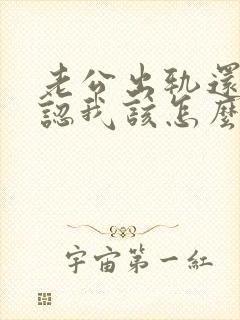 老公出軌還
認我該怎麼
宇宙第一紅